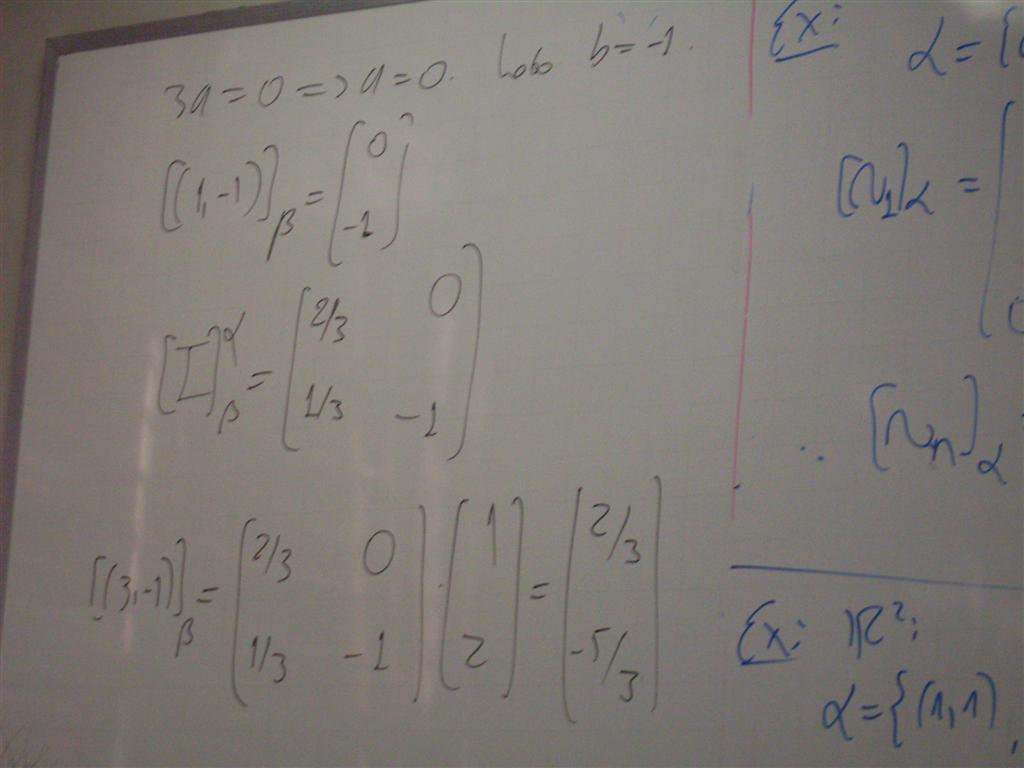 3a = 0 => a = 0. Logo b = -1.
[(1,-1)]β = [0 -1]
[I]αβ = [2/3 0 1/3 -1]
[(3,-1)]β = [2/3 0 1/3 -1] · [1 2] = [2/3 -5/3]
Ex: α = {(
[v1]α = [
∴ [vn]α
Ex: R²:
α = {(1,1),